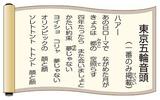 東京五輪音頭
（一番のみ掲載）
ハアー
あの日ローマで ながめた月が
きょうは 都の 空照らす
四年たったら また会いましょと
かたい約束 夢じゃない
ヨイショ コリャ 夢じゃない
オリンピックの 顔と顔
ソレトントトント 顔と顔